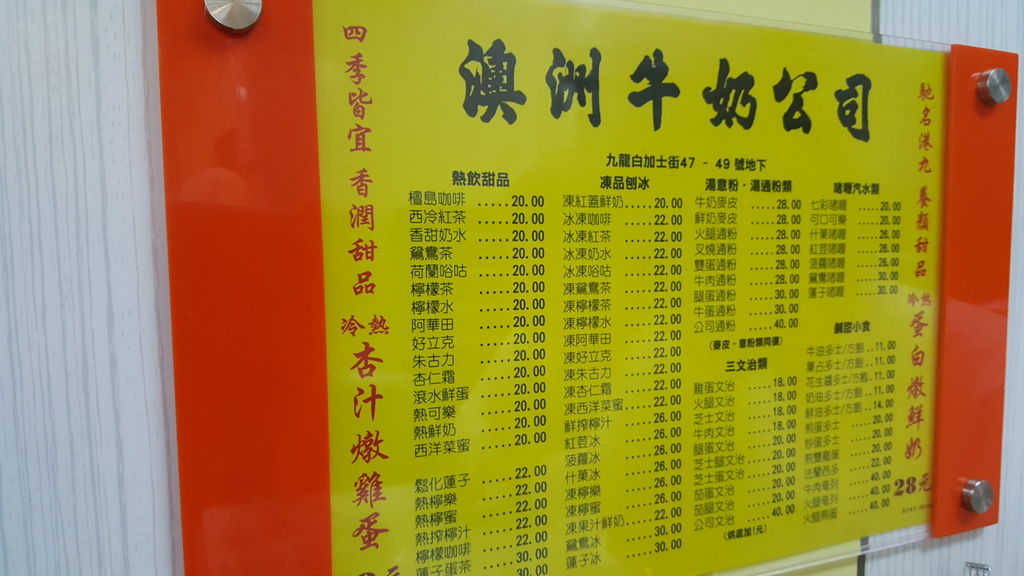 四季皆宜 香潤甜品
冷熱
杏汁燉雞蛋
澳洲牛奶公司
九龍白加士街47 - 49 號地下
熱飲甜品
檀島咖啡 .....20.00
西冷紅茶 .....20.00
香甜奶水 .....20.00
鴛鴦茶 .....20.00
荷蘭哈咕 .....20.00
檸檬茶 .....20.00
檸檬水 .....20.00
阿華田 .....20.00
好立克 .....20.00
朱古力 .....20.00
杏仁霜 .....20.00
滾水鮮蛋 .....20.00
熱可樂 .....20.00
熱鮮奶 .....20.00
西洋菜蜜 .....20.00
鬆化蓮子 .....22.00
熱檸樂 .....22.00
熱檸蜜 .....22.00
熱搾檸汁 .....22.00
檸檬咖啡 .....30.00
蓮子蛋茶 .....30.00
凍品刨冰
凍紅蓋鮮奶.....20.00
冰凍咖啡 .....22.00
冰凍紅茶 .....22.00
冰凍奶水 .....22.00
冰凍哈咕 .....22.00
凍鴛鴦茶 .....22.00
凍檸檬茶 .....22.00
凍檸檬水 .....22.00
凍阿華田 .....22.00
凍好立克 .....22.00
凍朱古力 .....22.00
凍杏仁霜 .....22.00
凍西洋菜蜜.....22.00
鮮搾檸汁 .....26.00
紅荳冰 .....26.00
菠蘿冰 .....26.00
什菓冰 .....26.00
凍檸樂 .....26.00
凍檸蜜 .....26.00
凍果汁鮮奶.....22.00
鴛鴦冰 .....30.00
蓮子冰 .....30.00
湯意粉・湯通粉類
牛奶麥皮 ......28.00
鮮奶麥皮 ......28.00
火腿通粉 ......28.00
叉燒通粉 ......28.00
雙蛋通粉 ......28.00
牛肉通粉 ......28.00
腿蛋通粉 ......30.00
牛蛋通粉 ......30.00
公司通粉 ......40.00
(麥皮・意粉類同價)
三文治類
雞蛋文治 .....18.00
火腿文治 .....18.00
芝士文治 .....18.00
牛肉文治 .....18.00
腿蛋文治 .....20.00
芝士腿文治 .....20.00
芝士蛋文治 .....20.00
茄蛋文治 .....20.00
茄腿文治 .....20.00
公司文治 .....40.00
(烘底加1元)
啫喱汽水類
七彩啫喱 .....20.00
可口可樂 .....20.00
什菓啫喱 .....26.00
紅荳啫喱 .....26.00
菠蘿啫喱 .....26.00
鴛鴦啫喱 .....30.00
蓮子啫喱 .....30.00
鹹甜小食
牛油多士/方飽..11.00
菓占多士/方飽..11.00
花生醬多士/方飽..11.00
奶油多士/方飽..11.00
鮮油多士/方飽..14.00
煎蛋多士 .....20.00
炒蛋多士 .....20.00
煎雙雞蛋 .....20.00
法蘭西多 .....22.00
牛肉奄列 .....40.00
火腿奄列 .....40.00
火腿煎蛋 .....40.00
馳名港九 養顏甜品
冷熱
蛋白燉鮮奶
28元